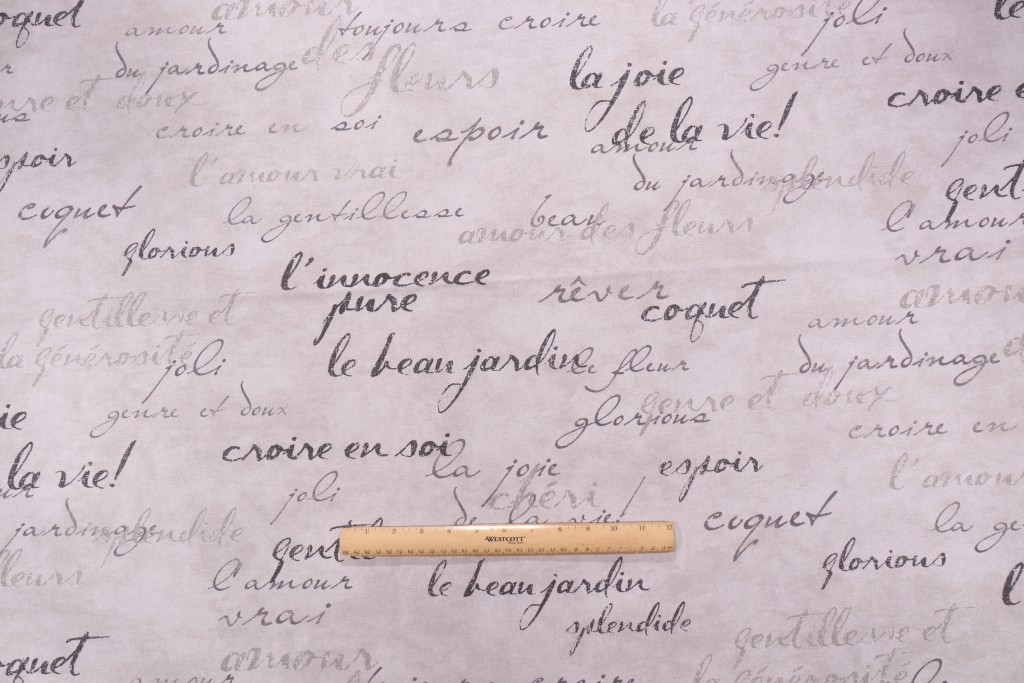 oquet
amour
amour
toujours croire
la générosité
joli
le
des
fleurs
du jardinage
la joie
genre et doux
croire e
nre et doux
croire en soi
espoir
de la vie!
amour
joli
spoir
l'amour vrai
du jardinage
splendide
gent
coquet
la gentillesse
beau
amour des fleurs
l'amour
vrai
glorious
l'innocence
pure
rêver
coquet
amour
gentillesse et
amour
la générosité
joli
le beau jardin
le fleur
du jardinage
genre et doux
ie
genre et doux
glorious
croire en
croire en soi
la joie
espoir
la vie!
joli
chéri
l'amour
de la vie!
coquet
jardinage
splendide
la ge
WESTCOTT
gentille
glorious
fleurs
l'amour
le beau jardin
vrai
splendide
gentillesse et
oquet
amour
la générosité